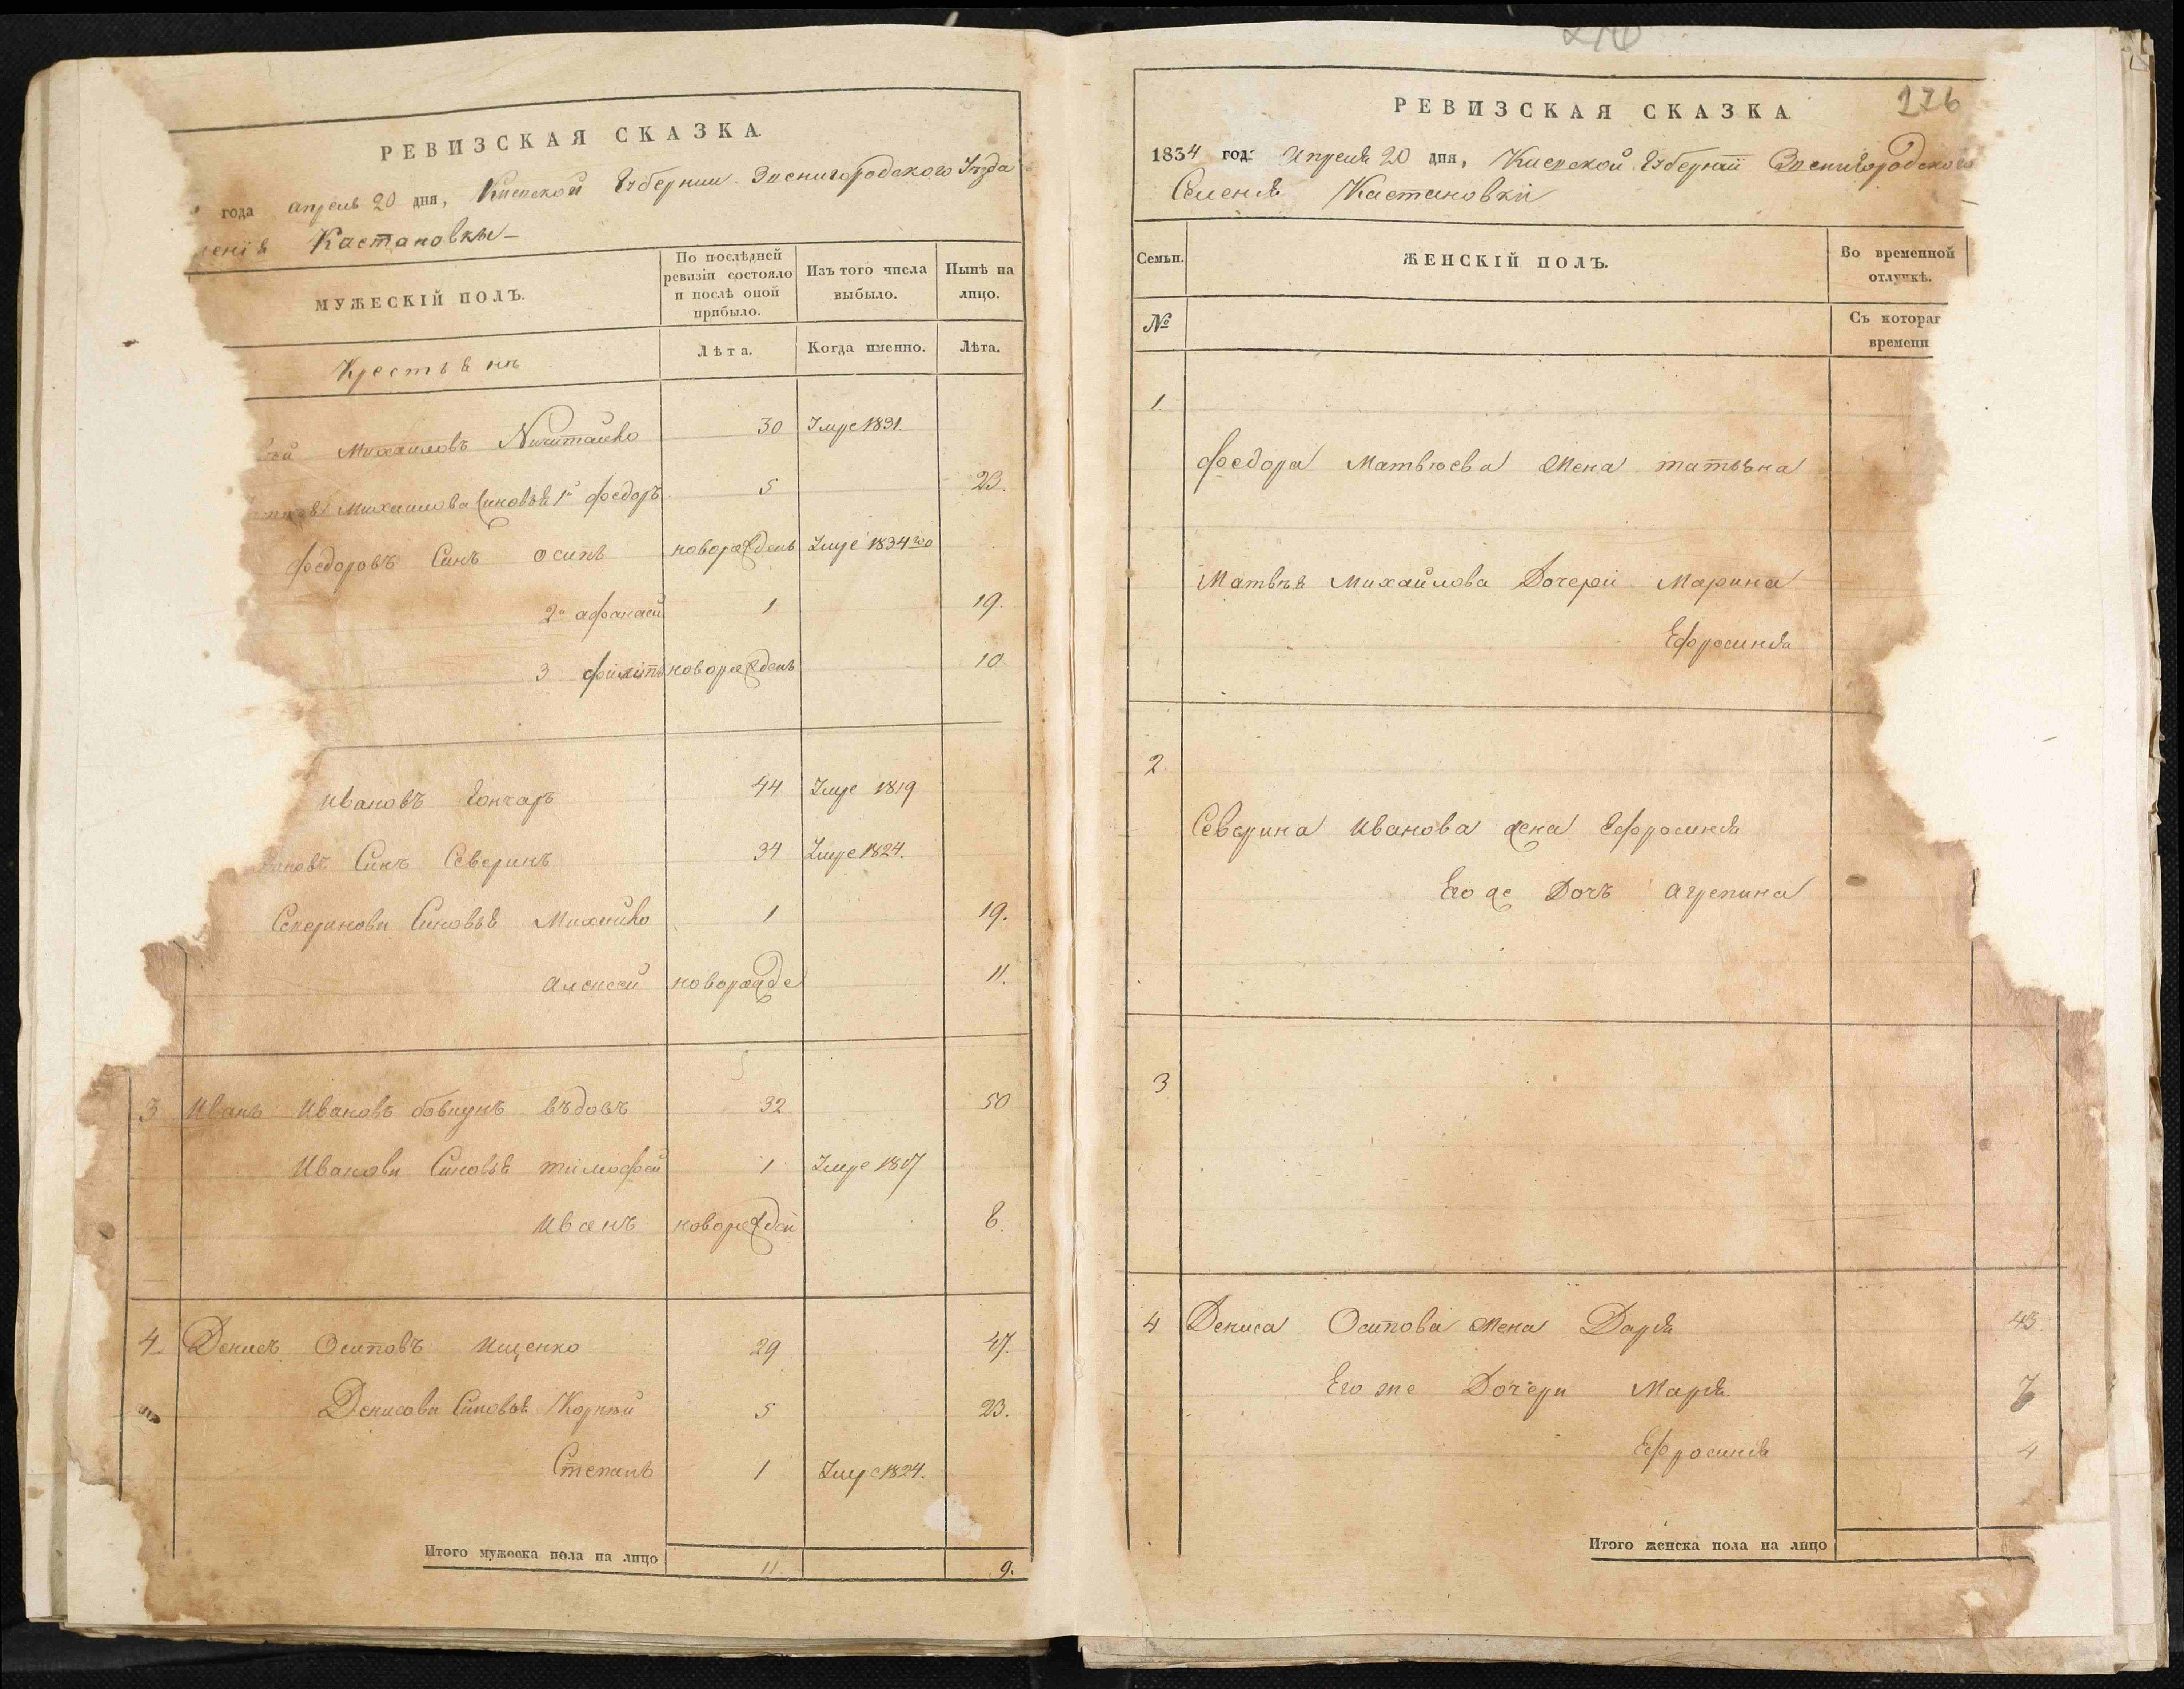 РЕВИЗСКАЯ СКАЗКА.
года апреля 20 дня, Киевской Губернии Звенигородского Уезда
Кастановки
МУЖЕСКІЙ ПОЛЪ.
По послѣдней ревизіи состояло и послѣ оной прибыло.
Изъ того числа выбыло.
Нынѣ на лицо.
Лѣта.
Когда именно.
Лѣта.
Михаиловъ Ничитайко 30 Умре 1831.
Михаилова Синовья 1й Федоръ 5 23.
Федоровъ Синъ Осипъ Умре 1834го
2й афанаси 1 19.
3 10
Ивановъ Гончаръ 44 Умре 1819
Синъ Северинъ 34 Умре 1824.
Синовья Михайло 1 19.
Алексей 11.
3 Иванъ Ивановъ въдовъ 32 50
Иванови Синовья тимофей 1 Умре
Иванъ 8.
4 Денисъ Осиповъ Ищенко 29 47.
Денисови Синовья Корнѣй 5 23.
Степанъ 1 Умре 1824.
Итого мужеска пола на лицо 11. 9.
276
РЕВИЗСКАЯ СКАЗКА
1834 года Апреля 20 дня, Киевской Губерніи Звенигородского
Селения Кастановки
Семьи.
ЖЕНСКІЙ ПОЛЪ.
Во временной отлучкѣ.
№
Съ котораг
времени
1.
Федора Матвюева Жена татьяна
Матвѣя Михайлова Дочери Марина
Ефросиния
2.
Северина Иванова жена Ефросиния
Его же Дочъ Агрепина
3
4 Дениса Осипова Жена Дарья 45.
Его же Дочери Марья 7
Ефросиния 4
Итого женска пола на лицо